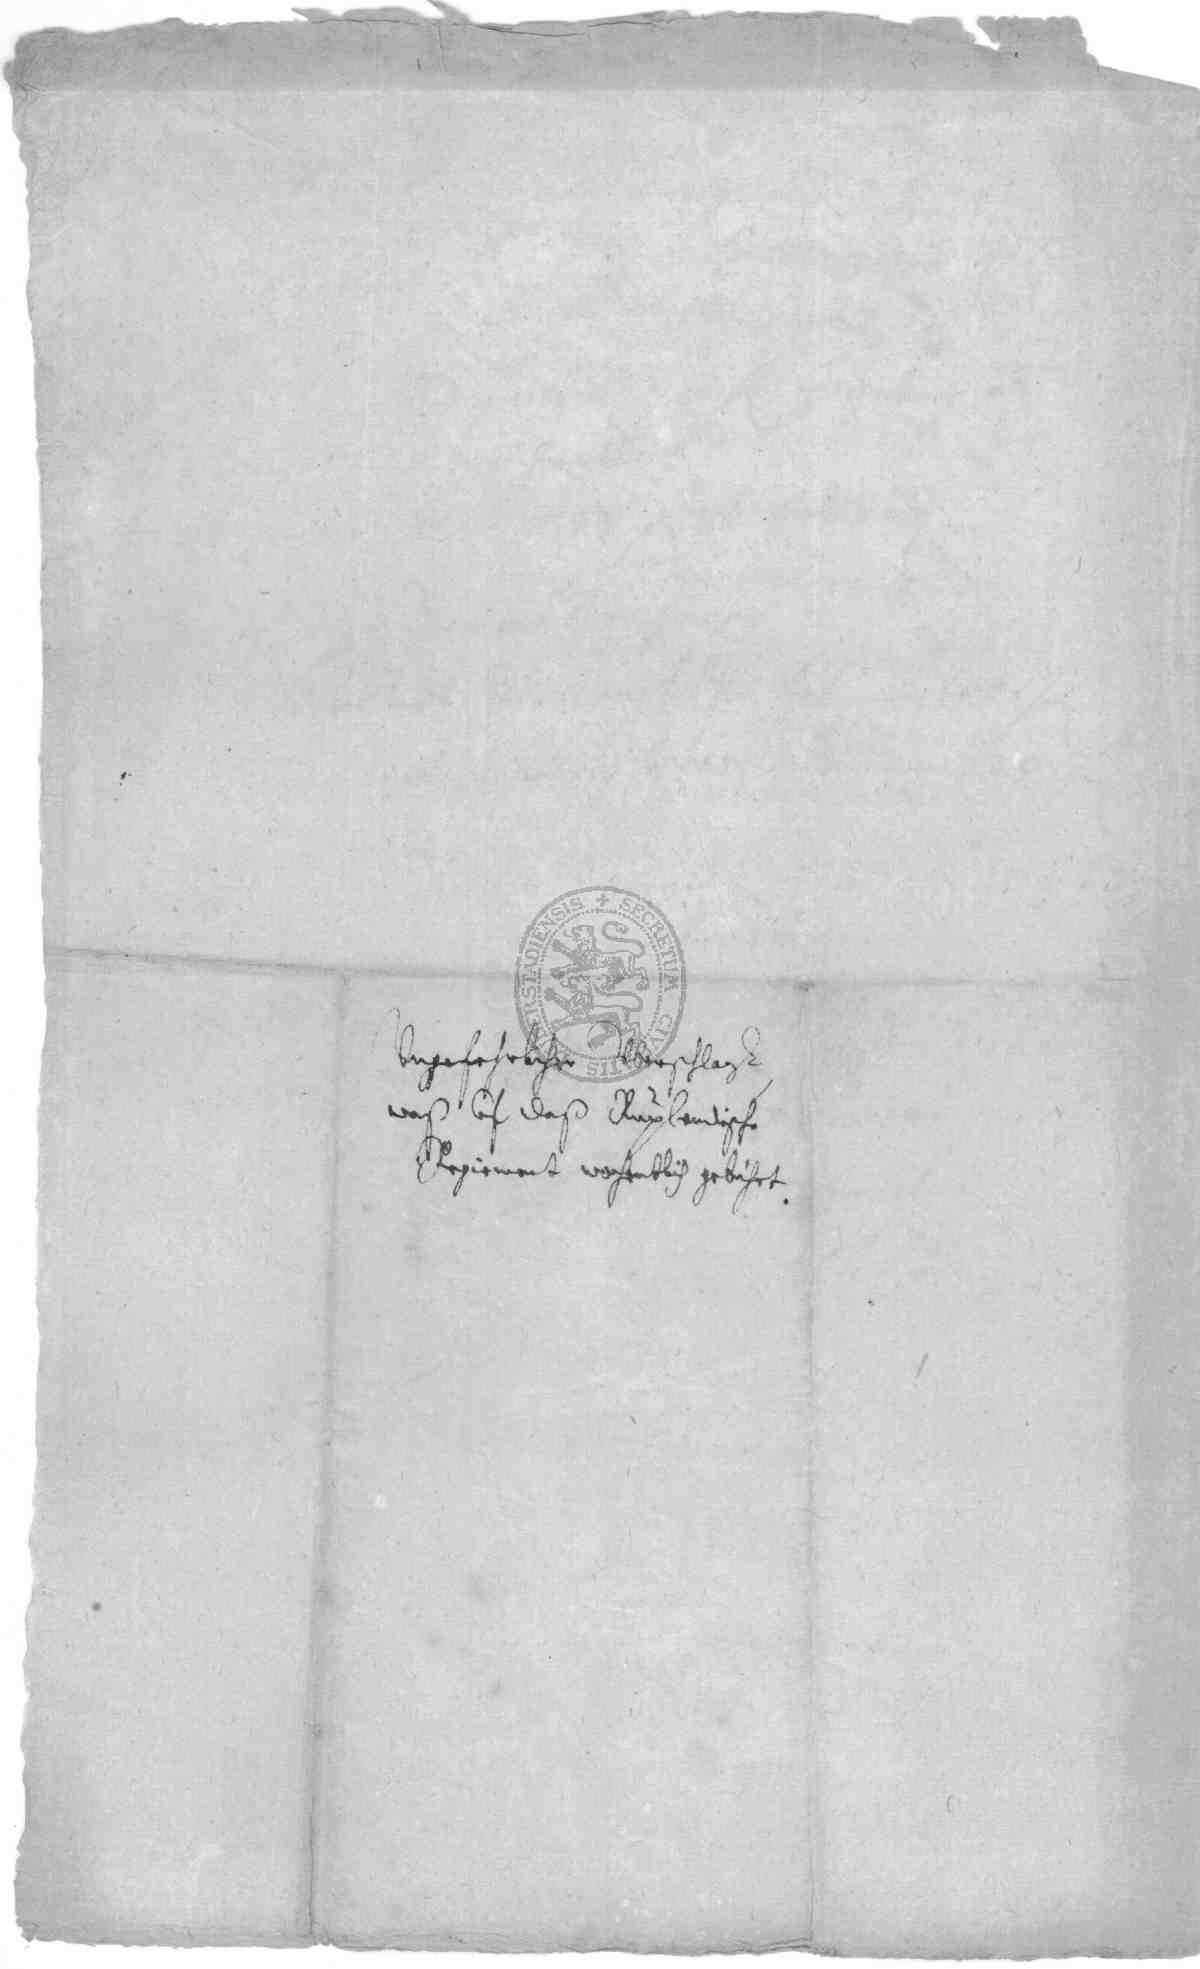 SECRETUM CIVITATIS ERSTADIENSIS +
Vngefehrlicher Vberschlagk,
waß vf daß Ruplendische
Regiement wochentlich gebührt.